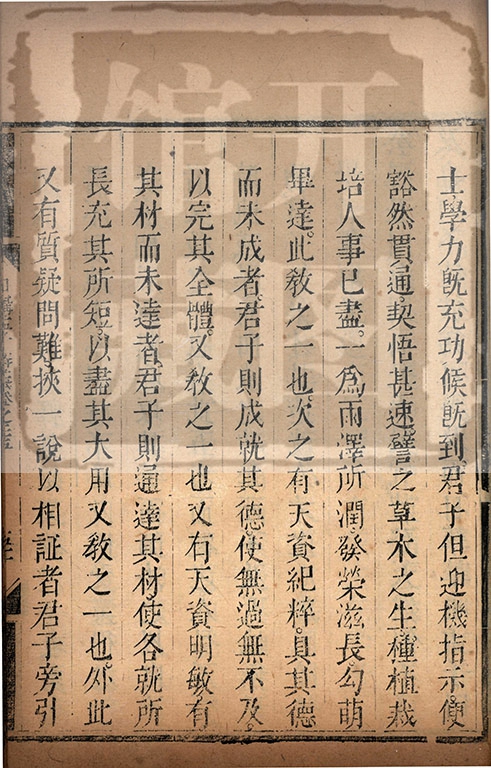 士學力既充功候既到君子但迎機指示便
豁然貫通契悟甚速譬之草木之生種植栽
培人事已盡一爲雨澤所潤發榮滋長勾萌
畢達此敎之一也次之有天資純粹具其德
而未成者君子則成就其德使無過無不及
以完其全體又敎之一也又有天資明敏有
其材而未達者君子則通達其材使各就所
長充其所短以盡其大用又敎之一也外此
又有質疑問難挾一說以相証者君子旁引